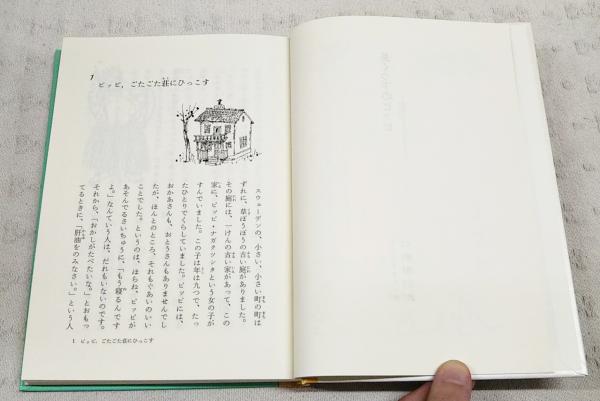 1
ピッピ，ごたごた荘にひっこす
スウェーデンの、小さい、小さい町の町は
ずれに、草ぼうぼうの古い庭がありました。
その庭には、一けんの古い家があって、この
家に、ピッピ・ナガクツシタという女の子が
すんでいました。この子は年は九つで、たっ
たひとりでくらしていました。ピッピには、
おかあさんも、おとうさんもありませんでし
たが、ほんとのところ、それもぐあいのいい
ことでした。というのは、ほらね、ピッピが
あそんでるさいちゅうに、「もう寝るんです
よ。」なんていう人は、だれもいないのです。
それから、「おかしがたべたいな。」とおもっ
てるときに、「肝油をのみなさい。」という人
1 ピッピ，ごたごた荘にひっこす